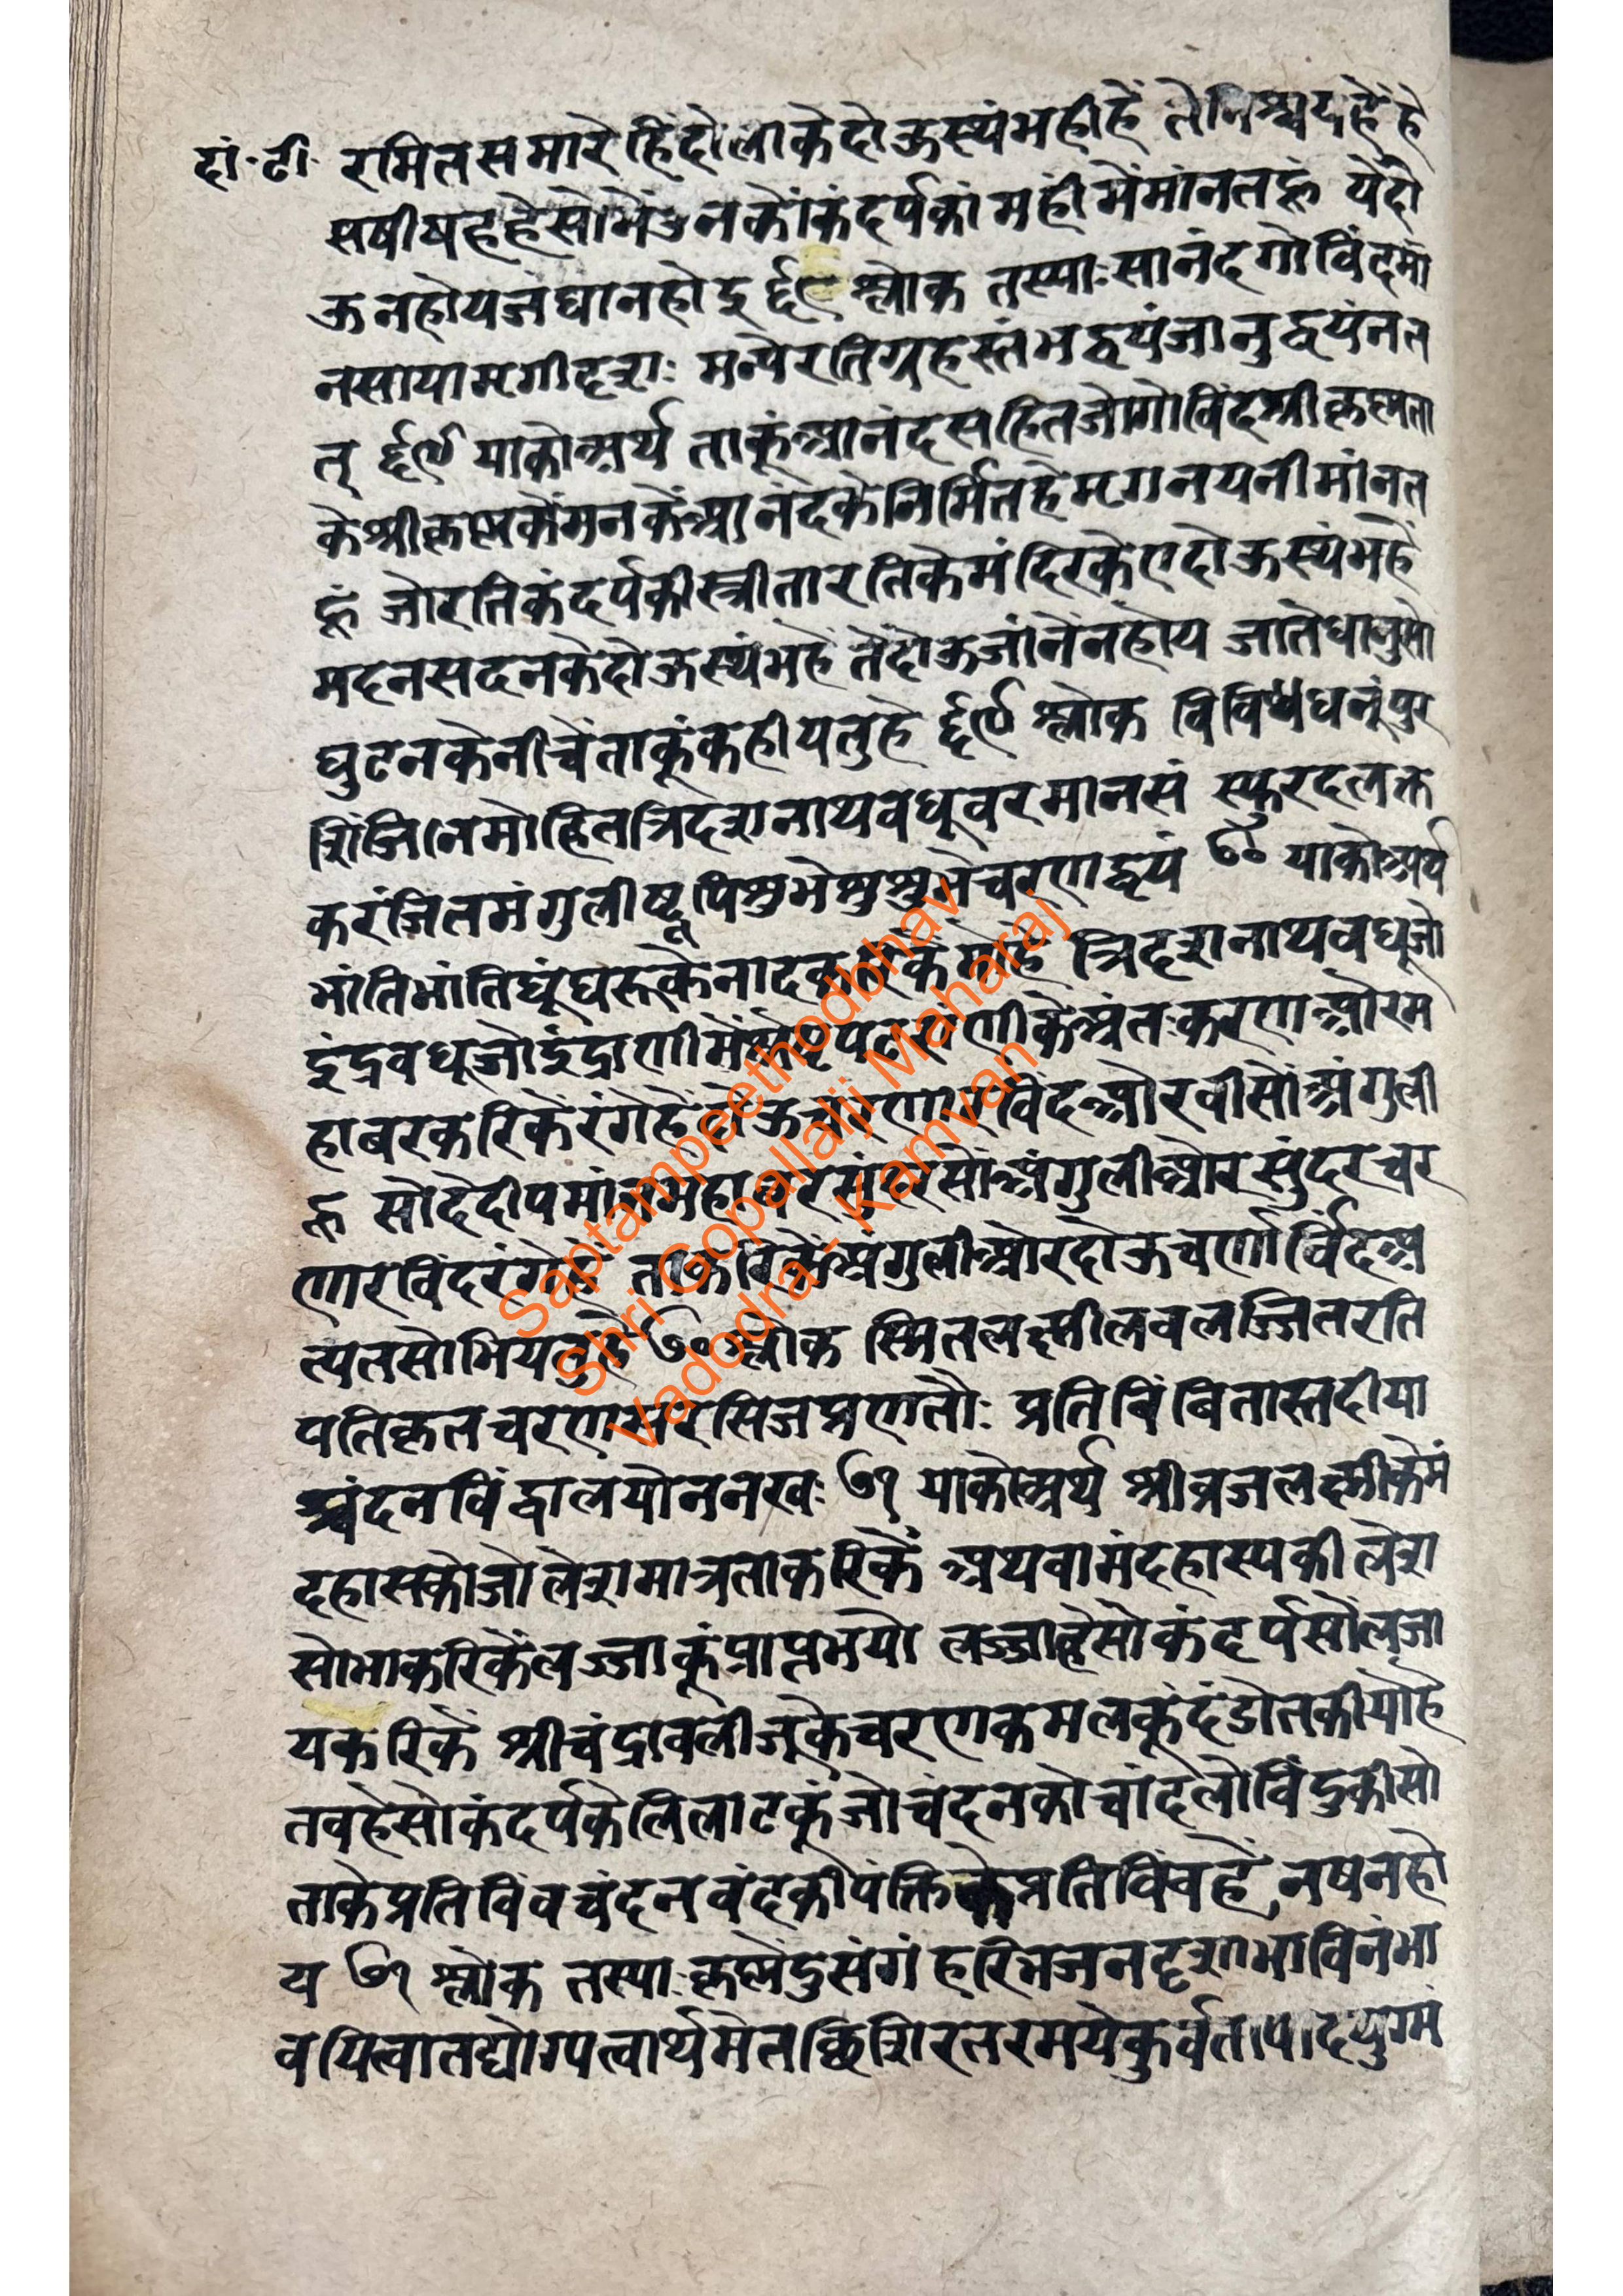 दां·टी· रमितसमारे हिंदोलाकेदोऊस्थंभहीहें तेनिश्चयहेंहे
सषीषहहेसोमेंउनकोंकंदर्पकांमहीमेंमांनतहूं येदो
ऊनहोयजंघानहोइ ६८ श्लोक तस्याःसानंदगोविंदमा
नसायामृगीदृशः मन्येरतिगृहस्तंभद्वयंजानुद्वयंनत
त् ६९ याकोअर्थ ताकूंआनंदसहितजोगोविंदश्रीकृष्णता
केश्रीकृष्णकेंमनकेंआनंदकेनिर्मितहेमृगनयनीमांनत
हूं जोरतिकंदर्पकीस्त्रीतारतिकेमंदिरकेएदोऊस्थंभहें
मदनसदनकेदोऊस्थंभहें तेंदोऊजांनेंनहोय जातेंधानुसो
घुटनकेनीचेंताकूंकहीयतुहे ६९ श्लोक विविधधनूंपुर
शिंजितमोहितत्रिदशनाथवधूवरमानसं स्फुरदलक्त
करंजितमंगुलीष्वपिशुभेशुशुभेचरणद्वयं ७० याकोअर्थ
भांतिभांतिघूंघरूकेनादकरिकेंमोहे त्रिदशनाथवधूजो
इंद्रवधूजोइंद्राणी अंतःकरणओरम
हाबरकरिकेंरंगेहेंदोऊचरणारविंदओरवीसोंअंगुली
रू सोदेदीपमांनमहाबरसुंदरसोंअंगुलीओरसुंदरचर
णारविंदरंगेहें ताकरिकेंअंगुलीओरदोऊचर्णार्विंदअ
त्यतसोभियतुहे ७० श्लोक स्मितलक्ष्मीलवलज्जितरति
पतिकृतचरणसरसिजप्रणतौः प्रतिबिंबितास्तदीया
श्चंदनविंद्वालयोननखः ७१ याकोअर्थ श्रीव्रजलक्ष्मीकेमं
दहासकोजोलेशमात्रताकरिकें अथवामंदहास्यकीलेश
सोभाकरिकेंलज्जाकूंप्राप्तभयो लज्जाहेसोकंदर्पसोंलजा
यकरिकें श्रीचंद्रावलीजूकेचरणकमलकूंदंडोतकीयोहे
तबहेसोकंदर्पकेलिलाटकूंजोचंदनकोचांदलोविंदुकीसो
ताकेप्रतिविंवचंदनवंदकीपंक्तिकेप्रतिविंवहें नषनहो
य ७१ श्लोक तस्याःकृष्णेंदुसंगं हरिभजनदृशाभाविनंभा
वयित्वातद्योग्यत्वार्थमेतच्छिशिरतरमयेकुर्वतापादयुग्मं
Saptampeethodbhav
Shri Gopallalji Maharaj
Vadodra - Kamvan